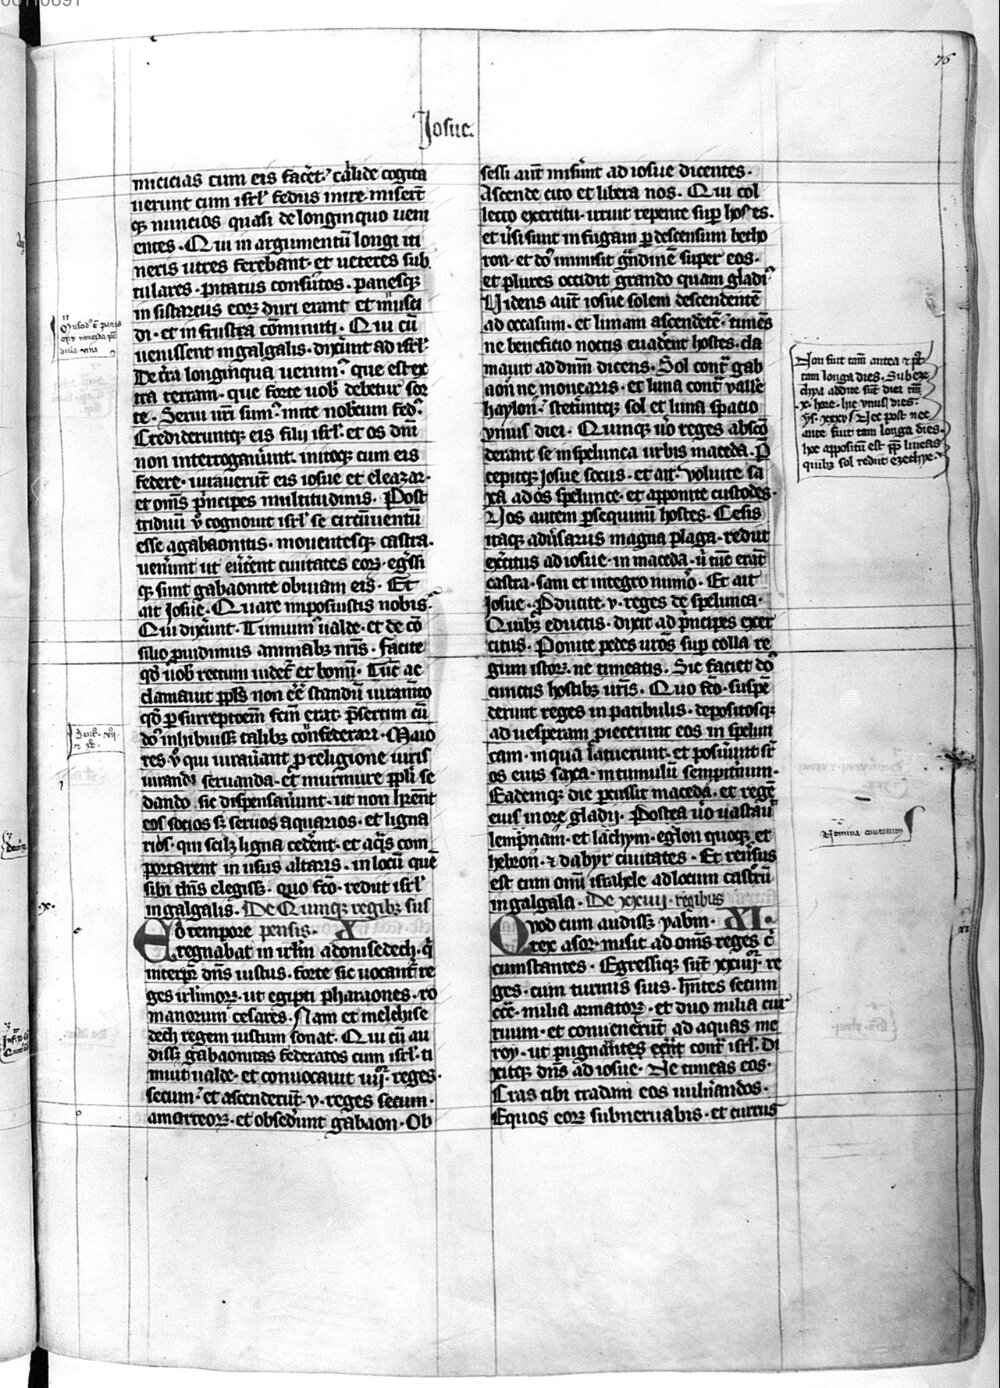 76
Josue.
micicias cum eis facet̄. calide cogita
uerunt cum isrl̄ fedus inire. miserūt
qꝫ nuncios quasi de longinquo ueni
entes. Qui in argumentū longi iti
neris utres ferebant et ueteres sub
tulares. pitatus consutos. panesqꝫ
in sistarcus eoꝝ duri erant et musci
di. et in frustra cōminuti. Qui cū
uenissent in galgalis. dixer̄unt ad isrl̄
De tr̄a longinqua uenim⁹. que est ex
tra terram. que forte uob̄ debetur sor
te. Serui ur̄i sum⁹. inite nobcum fed⁹.
Credideruntqꝫ eis filii isrl̄. et os dn̄i
non interrogauer̄unt. initoqꝫ cum eis
federe. iurauerūt eis iosue et eleazar.
et om̄s pͥncipes multitudinis. Post
triduū v̄o cognouit isrl̄ se circūuentū
esse a gabaonitis. mouentesqꝫ castra.
uener̄unt ut euer̄terent ciuitates eoꝝ. egr̄ssi
qꝫ sunt gabaonite obuiam eis. Et
ait Josue. Quare imposuistis nobis.
Qui dixer̄unt. Timuim⁹ ualde. et de cō
silio ꝓuidimus animabꝫ nr̄is. facite
qd̄ uob̄ rectum uidet̄ et bonū. Tūc ac
clamauit ppl̄s non eē standū iuram̄to
qd̄ ꝑ surreptoēm fc̄m erat. pͥsertim cū
do⁹ inhibuisset talibꝫ confederari. Maio
res v̄o qui iurauerant ꝑ religione iuris
iurandi seruanda. et murmure ppl̄i se
dando. sic dispensauer̄unt. ut non hr̄ent
eos socios sꝫ seruos aquarios. et ligna
rios. qui scilꝫ ligna cederent. et aq̄s com
portarent in usus altaris. in locū quē
sibi dn̄s elegisset. quo fc̄o. rediit isrl̄
in galgalis. De Quinqꝫ regibꝫ sus
Eo tempore pensis. X
regnabat in irl̄m adonisedech. q̄
interpr̄ dn̄s iustus. forte sic uocant̄ re
ges irl̄imoꝝ. ut egipti pharaones. ro
manorum cesares. Nam et melchise
dech regem iustum sonat. Qui cū au
disset gabaonitas federatos cum isrl̄. ti
muit ualde. et conuocauit iiiior. reges.
secum. et ascenderūt .v. reges secum.
amorreoꝝ. et obseder̄unt gabaon. Ob
sessi aut̄ miser̄unt ad iosue dicentes.
Ascende cito et libera nos. Qui col
lecto exercitu. irruit repente suꝑ hostes.
et uer̄si sunt in fugam ꝑ descensum betho
ron. et do⁹ immisit grandinē super eos.
et plures occidit grando quam gladi⁹.
Videns aut̄ iosue solem descendentē
ad occasum. et lunam ascendētē. timēs
ne beneficio noctis euaderēt hostes. cla
mauit ad dn̄m dicens. Sol contͣ gab
aon ne mouearis. et luna contͣ valle
haylon. steter̄untqꝫ sol et luna spacio
vnius diei. Quinqꝫ uo reges abscō
derant se in spelunca urbis maceda. P
cepitqꝫ Josue socus. et ait. voluite sa
xa ad os spelunce. et apponite custodes.
Vos autem ꝑsequimini hostes. Cesis
itaqꝫ aduer̄sariis magna plaga. rediit
exercitus ad iosue. in maceda. u̇ tūc erāt
castra. sani et integro numero. Et ait
Josue. Producite .v. reges de spelunca.
Quibꝫ eductis. dixit ad pͥncipes exer
citus. Ponite pedes uros suꝑ colla re
gum istoꝝ. ne timeatis. Sic faciet do⁹
cunctis hostibꝫ ur̄is. Quo fc̄o. suspē
derunt reges in patibulis. depositosqꝫ
ad uesperam ꝓiecerunt eos in spelun
cam. in qua latuerunt. et posuerunt sr̄
os eius saxa. in tumulū sempiternum.
Eademqꝫ die ꝑcussit macedā. et regē
eius in ore gladii. Postea uo uastauit
lempnam. et lachym. eglon quoqꝫ et
hebron. ⁊ dabyr ciuitates. Et reuersus
est cum omi israhele ad locum castroꝝ
in galgala. De xxiiii. regibus
Quod cum audisset yabin. XI.
rex asor. misit ad om̄s reges cͥ
cumstantes. Egressiqꝫ sūt xxiiiior. re
ges. cum turmis suis. hn̄tes secum
ccc. milia armatoꝝ. et duo milia cur
ruum. et conuenerūt ad aquas me
roy. ut pugnantes eēnt contͣ isrl̄. Di
xitqꝫ dn̄s ad iosue. Ne timeas eos.
Cras tibi tradam eos uulnerandos.
Equos eoꝝ subneruabis. et currus
Non fuit tam antea ⁊ pt̄
tam longa dies. Sub eze
chya addite sūt diei tm̄
.x. hore. hic vnius dies.
ys. xxxv. Nec post nec
ante fuit tam longa dies.
hoc appositū est ꝓp lineas
quibꝫ sol rediit ezechye.
Nomina ciuitatum
.x.
xi